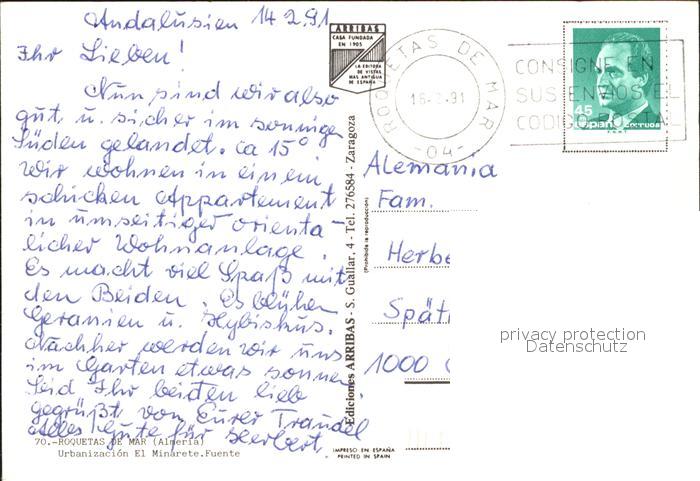 Andalusien 14.2.91
Ihr Lieben!
Nun sind wir also
gut u. sicher im sonnigen
Süden gelandet. ca 15°
Wir wohnen in einem
schicken Appartement
in umseitiger orienta-
licher Wohnanlage.
Es macht viel Spaß mit
den Beiden. Es blühen
Geranien u. Hybiskus.
Nachher werden wir uns
im Garten etwas sonnen
Seid Ihr beiden lieb
gegrüßt von Eurer Traudel
Alles Gute für Herbert.
70.-ROQUETAS DE MAR (Almería)
Urbanización El Minarete.Fuente
ARRIBAS
CASA FUNDADA
EN 1905
LA EDITORA
DE VISTAS
MAS ANTIGUA
DE ESPAÑA
Ediciones ARRIBAS - S. Guallar, 4 - Tel. 276584 - Zaragoza
(Prohibida la reproducción)
IMPRESO EN ESPAÑA
PRINTED IN SPAIN
ROQUETAS DE MAR
16-2-91
-04-
CONSIGNE EN
SUS ENVIOS EL
CODIGO POSTAL
45
España correos
Alemania
Fam.
Herbe
Spät
1000
privacy protection
Datenschutz